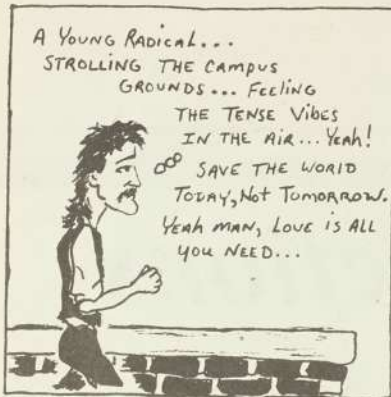 A YOUNG RADICAL...
STROLLING THE CAMPUS
GROUNDS... FEELING
THE TENSE VIBES
IN THE AIR... YEAH!
SAVE THE WORLD
TODAY, NOT TOMORROW.
YEAH MAN, LOVE IS ALL
YOU NEED...